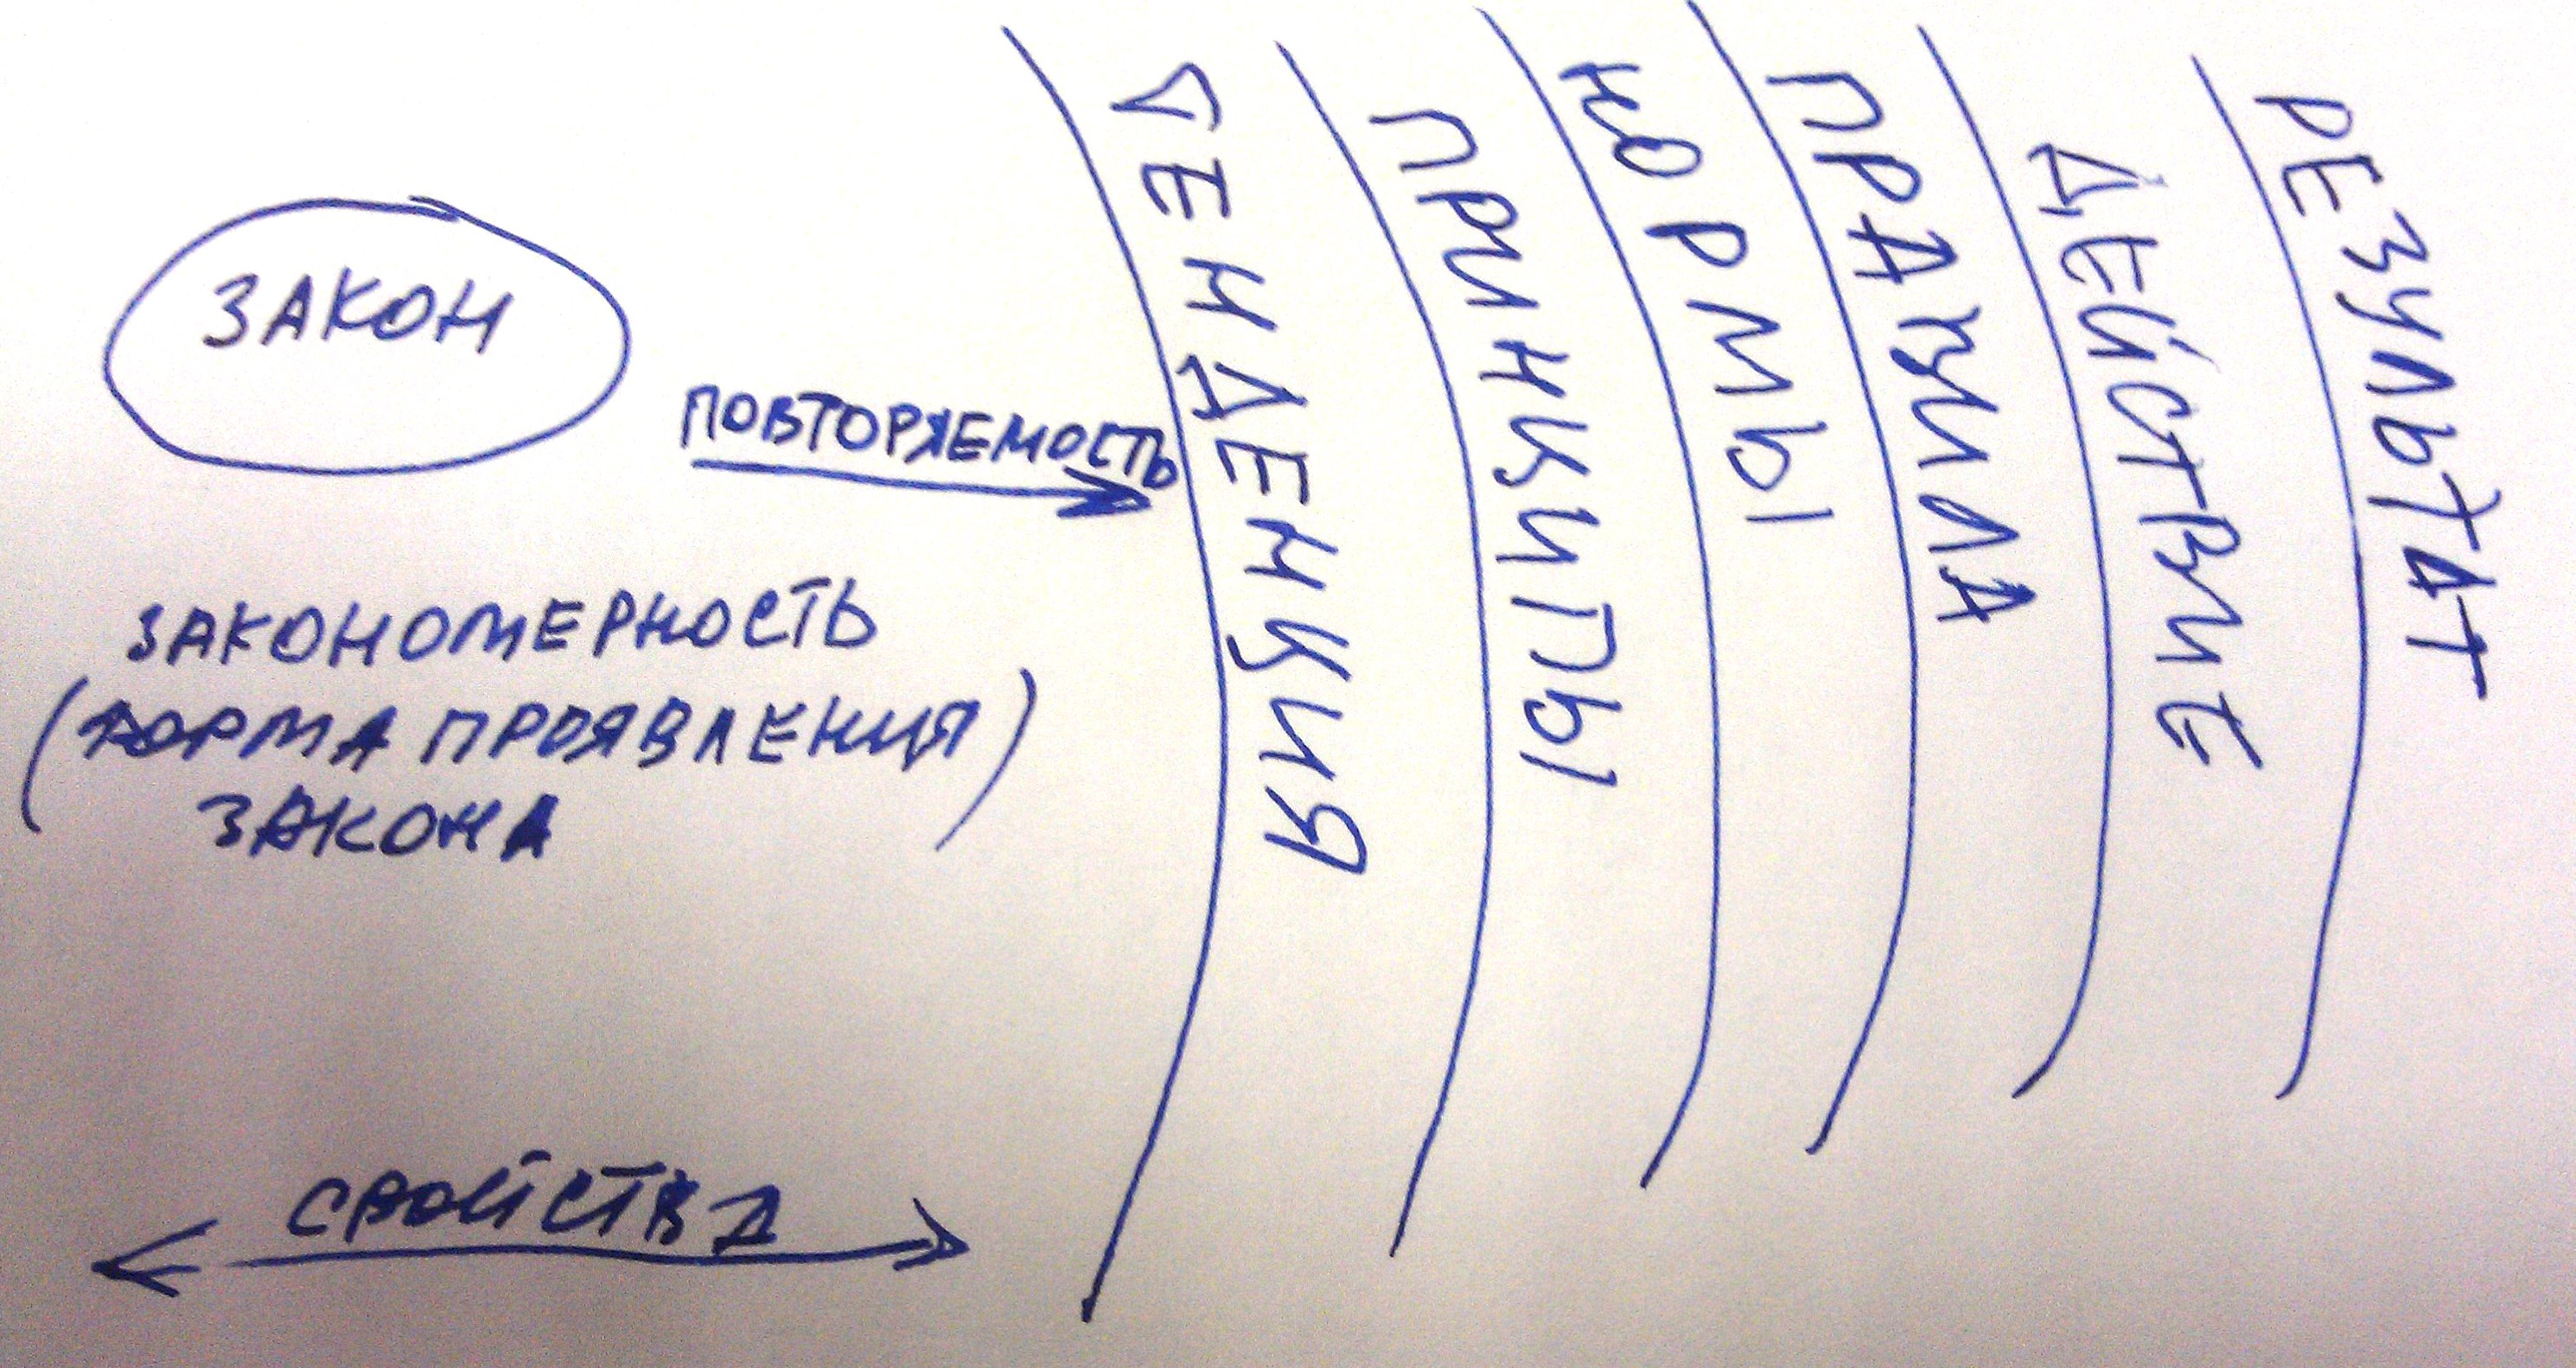 ЗАКОН
ПОВТОРЯЕМОСТЬ
ЗАКОНОМЕРНОСТЬ
(ФОРМА ПРОЯВЛЕНИЯ)
ЗАКОНА
СВОЙСТВА
ТЕНДЕНЦИЯ
ПРИНЦИПЫ
НОРМЫ
ПРАВИЛА
ДЕЙСТВИЕ
РЕЗУЛЬТАТ